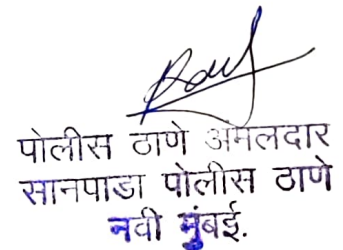 पोलीस ठाणे अंमलदार
सानपाडा पोलीस ठाणे
नवी मुंबई.